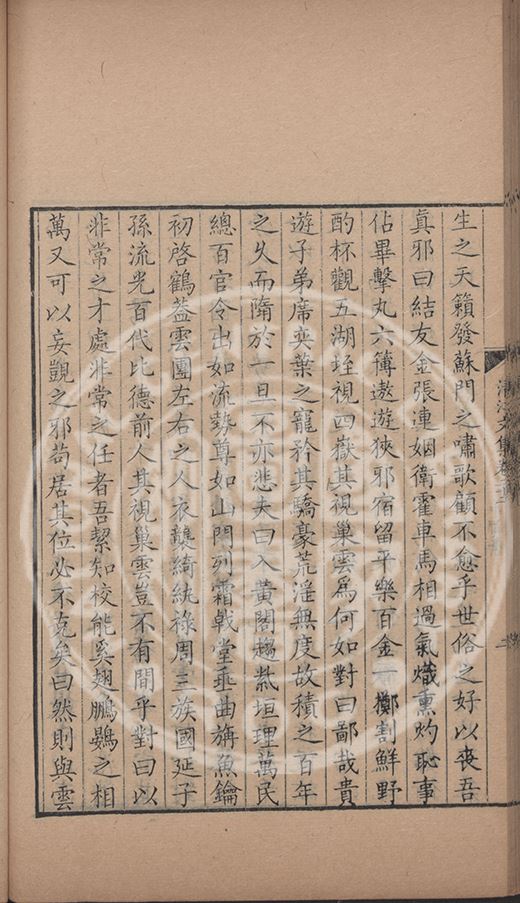 生之天籟發蘇門之嘯歌顧不愈乎世俗之好以喪吾
真邪曰結友金張連姻衛霍車馬相過氣熾熏灼恥事
佔畢擊丸六簿遨遊狹邪宿留平樂百金一擲割鮮野
酌杯觀五湖垤視四嶽其視巢雲為何如對曰鄙哉貴
遊子弟席奕葉之寵矜其驕豪荒淫無度故積之百年
之久而隋於一旦不亦悲夫曰入黃閣趨紫垣理萬民
總百官令出如流勢尊如山門列霜戟堂垂曲旃魚鑰
初啓鶴葢雲團左右之人衣襲綺紈祿周三族國延子
孫流光百代比德前人其視巢雲豈不有間乎對曰以
非常之才處非常之任者吾絜知校能奚翅鵬鷃之相
萬又可以妄覬之邪苟居其位必不克矣曰然則與雲